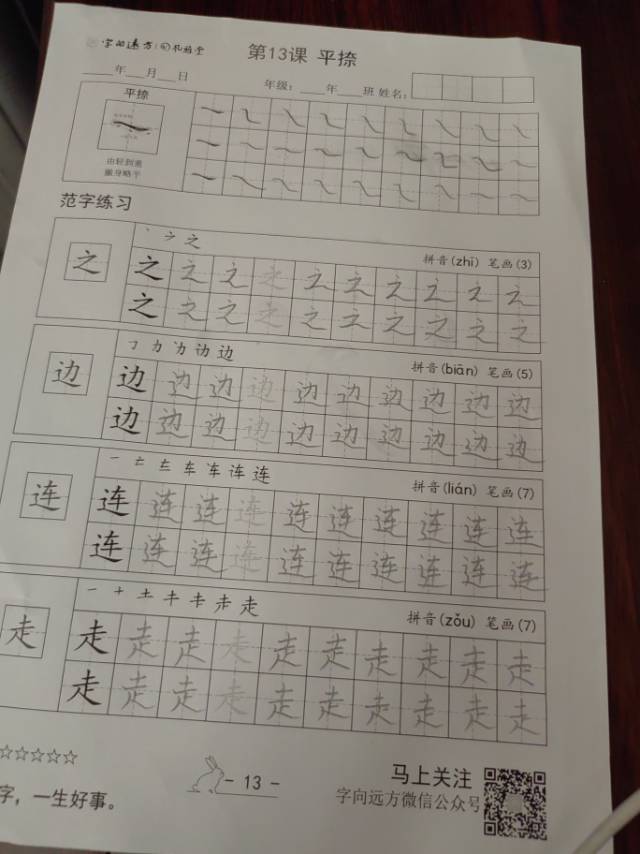 字向远方
第13课 平捺
年 月 日 年级： 年 班 姓名：
平捺
由轻到重
范字练习
丶 ㇇ 之
拼音(zhī) 笔画(3)
之 之 之 之 之 之 之 之 之 之 之
之 之 之 之 之 之 之 之 之 之
𠃌 力 为 边 边
拼音(biān) 笔画(5)
边 边 边 边 边 边 边 边 边 边 边
边 边 边 边 边 边 边 边 边 边
拼音(lián) 笔画(7)
连 连 连 连 连 连 连 连 连 连 连
连 连 连 连 连 连 连 连 连 连
拼音(zǒu) 笔画(7)
走 走 走 走 走 走 走 走 走 走 走
走 走 走 走 走 走 走 走 走 走
☆☆☆☆☆
- 13 -
马上关注
字，一生好事。
字向远方微信公众号